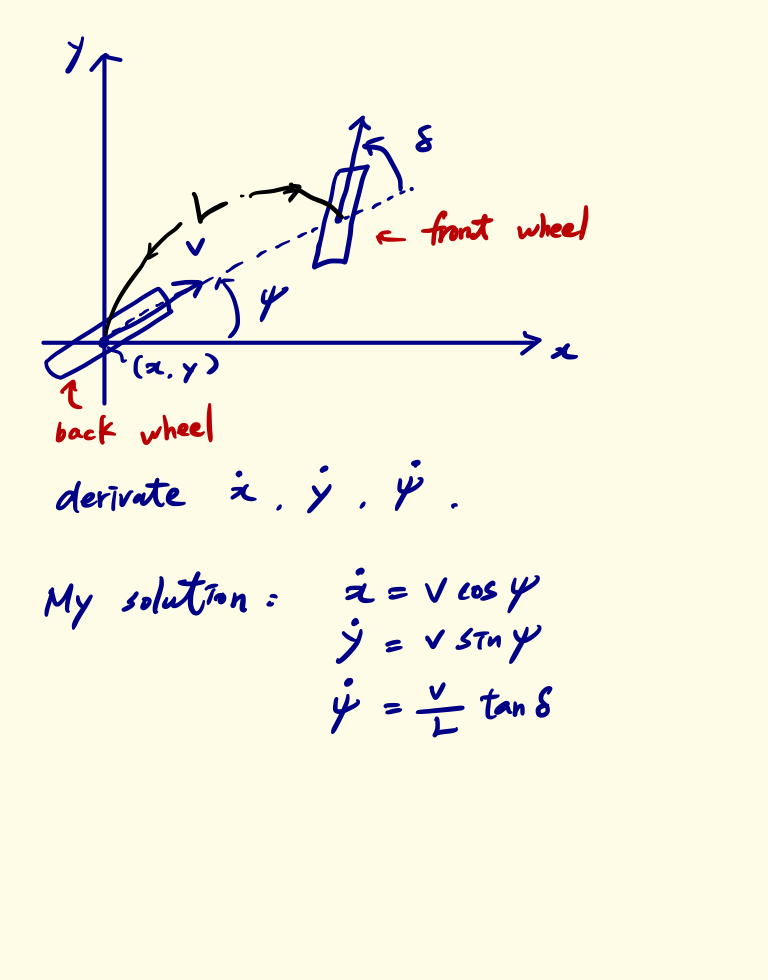 y
δ
L
v
← front wheel
ψ
(x, y)
x
back wheel
derivate ẋ, ẏ, ψ̇.
My solution: ẋ = v cos ψ
ẏ = v sin ψ
ψ̇ = v/L tan δ